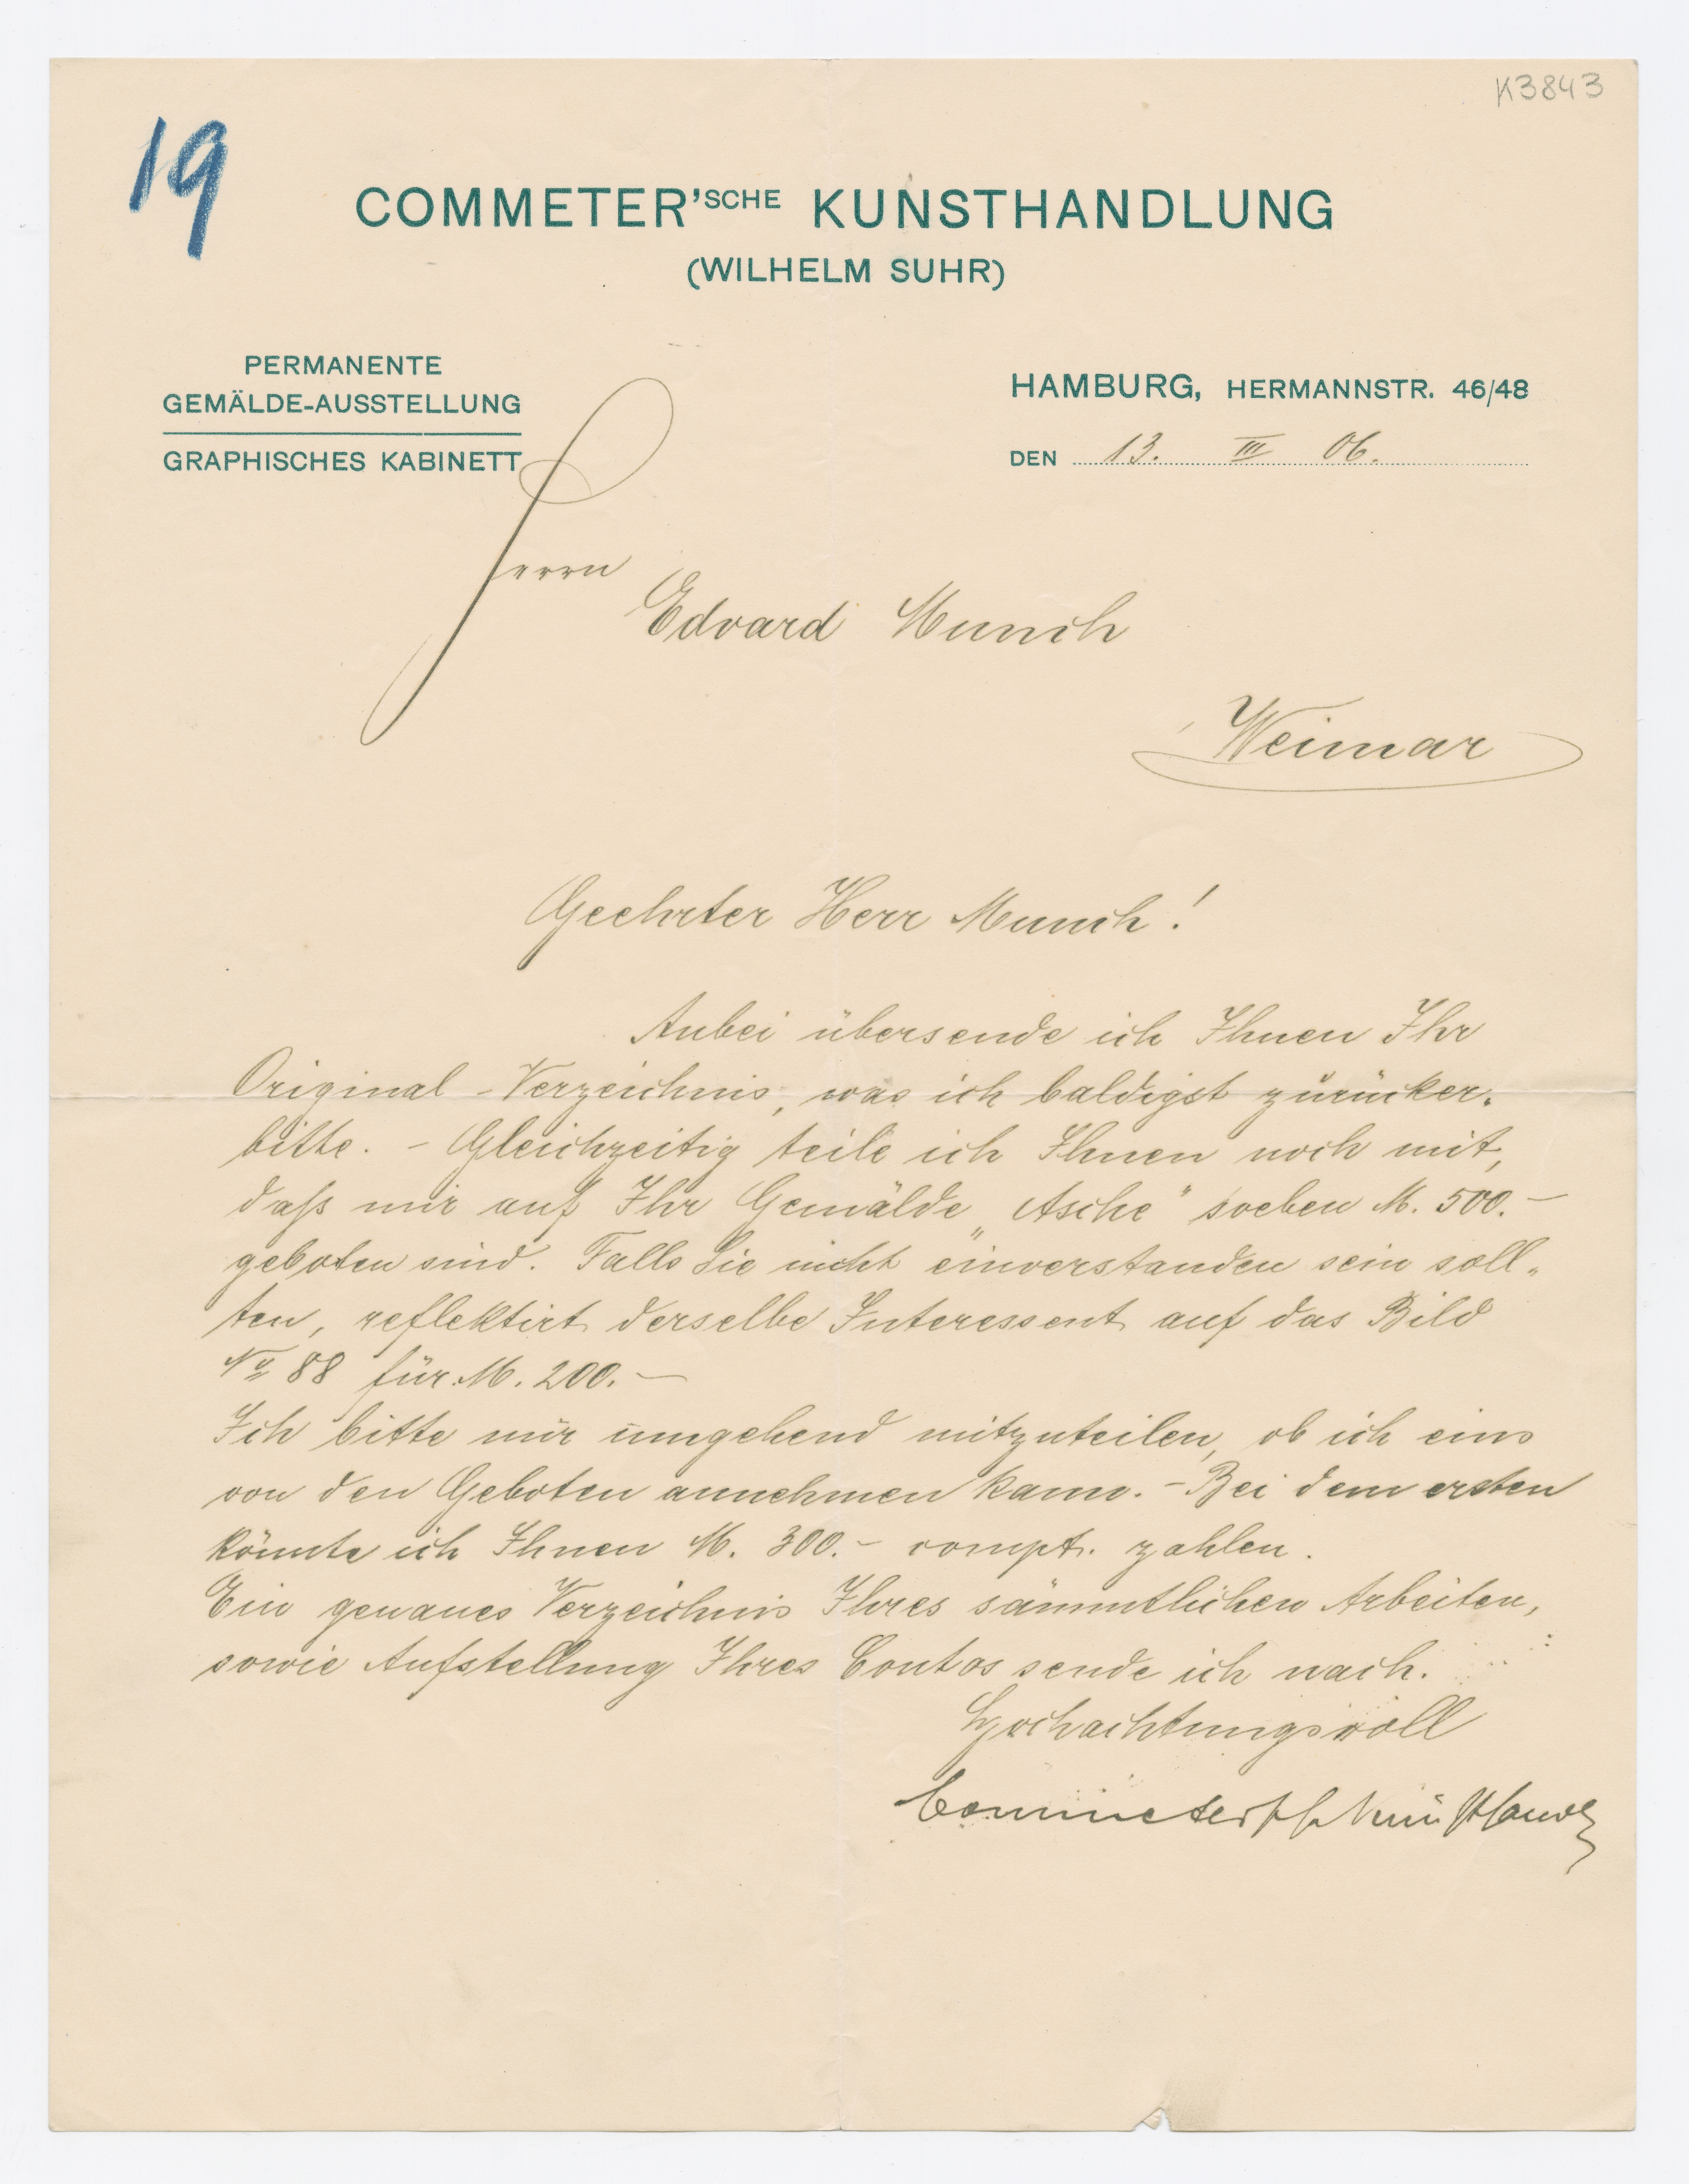 K3843
19
COMMETER'SCHE KUNSTHANDLUNG
(WILHELM SUHR)
PERMANENTE
GEMÄLDE-AUSSTELLUNG
GRAPHISCHES KABINETT
HAMBURG, HERMANNSTR. 46/48
DEN 13. III 06.
Herrn
Edvard Munch
Weimar
Geehrter Herr Munch!
Anbei übersende ich Ihnen Ihr
Original-Verzeichnis, was ich baldigst zurücker-
bitte. - Gleichzeitig teile ich Ihnen noch mit,
daß mir auf Ihr Gemälde „Asche" soeben M. 500.-
geboten sind. Falls Sie nicht einverstanden sein soll-
ten, reflektirt derselbe Interessent auf das Bild
No 88 für M. 200.-
Ich bitte mir umgehend mitzuteilen, ob ich eins
von den Geboten annehmen kann. - Bei dem ersten
könnte ich Ihnen M. 300.- compt. zahlen.
Ein genaues Verzeichnis Ihres sämmtlichen Arbeiten,
sowie Aufstellung Ihres Contos sende ich nach.
Hochachtungsvoll
Commetersche Kunsthandlg